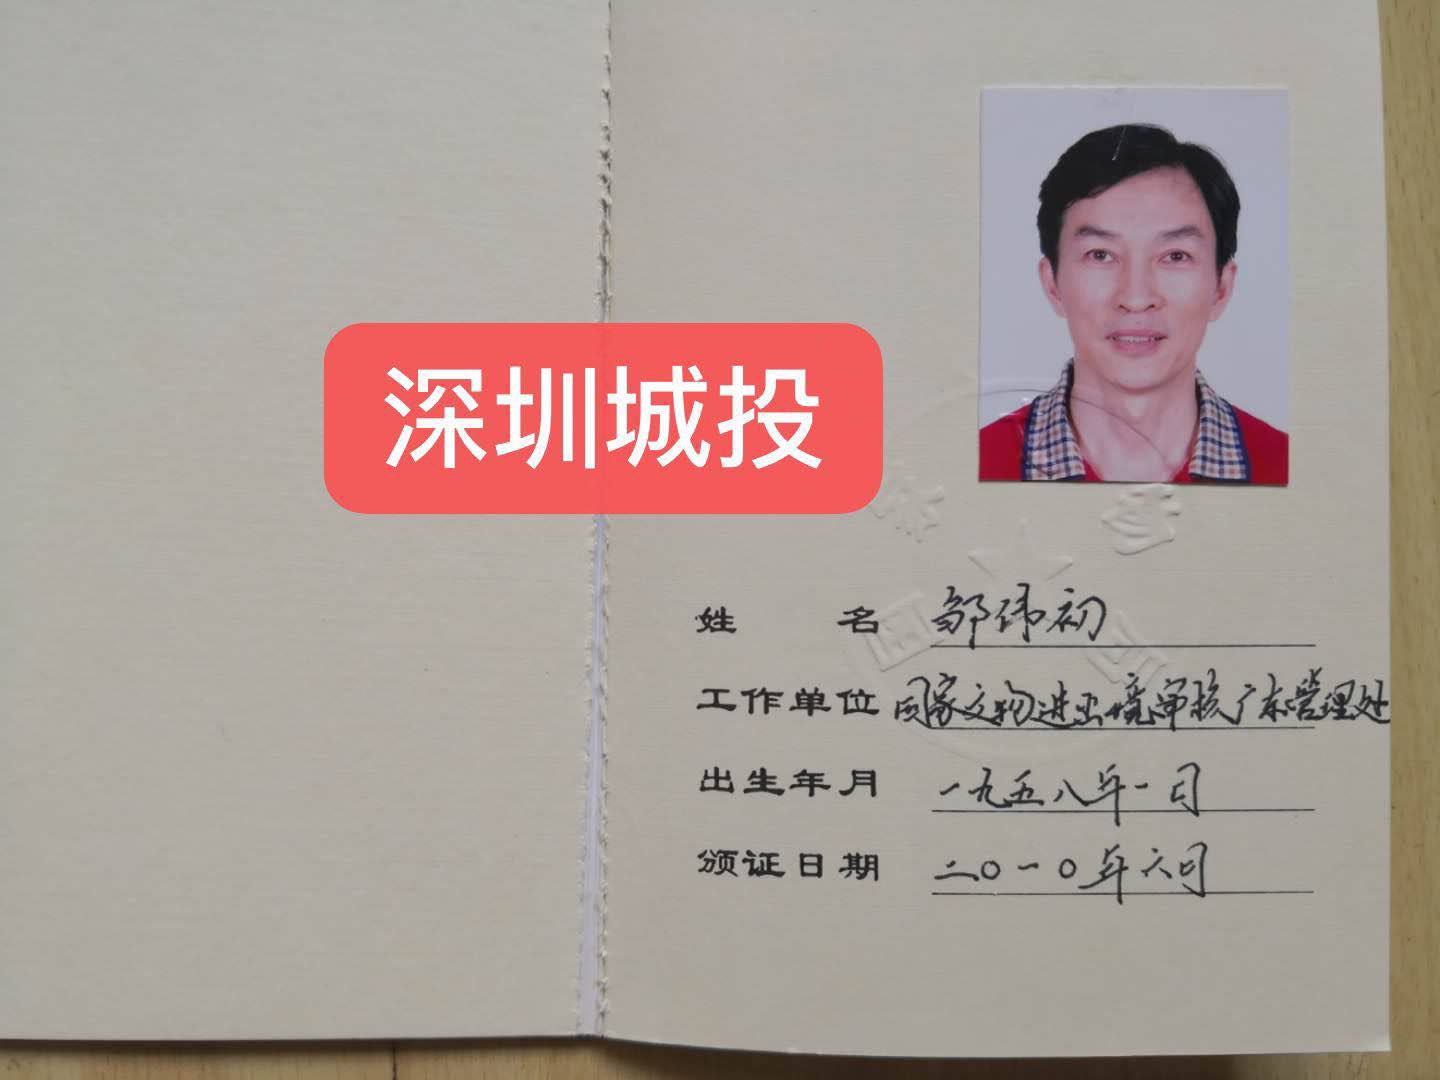 深圳城投
姓名 邹伟初
工作单位 国家文物进出境审核广东管理处
出生年月 一九五八年一月
颁证日期 二〇一〇年六月